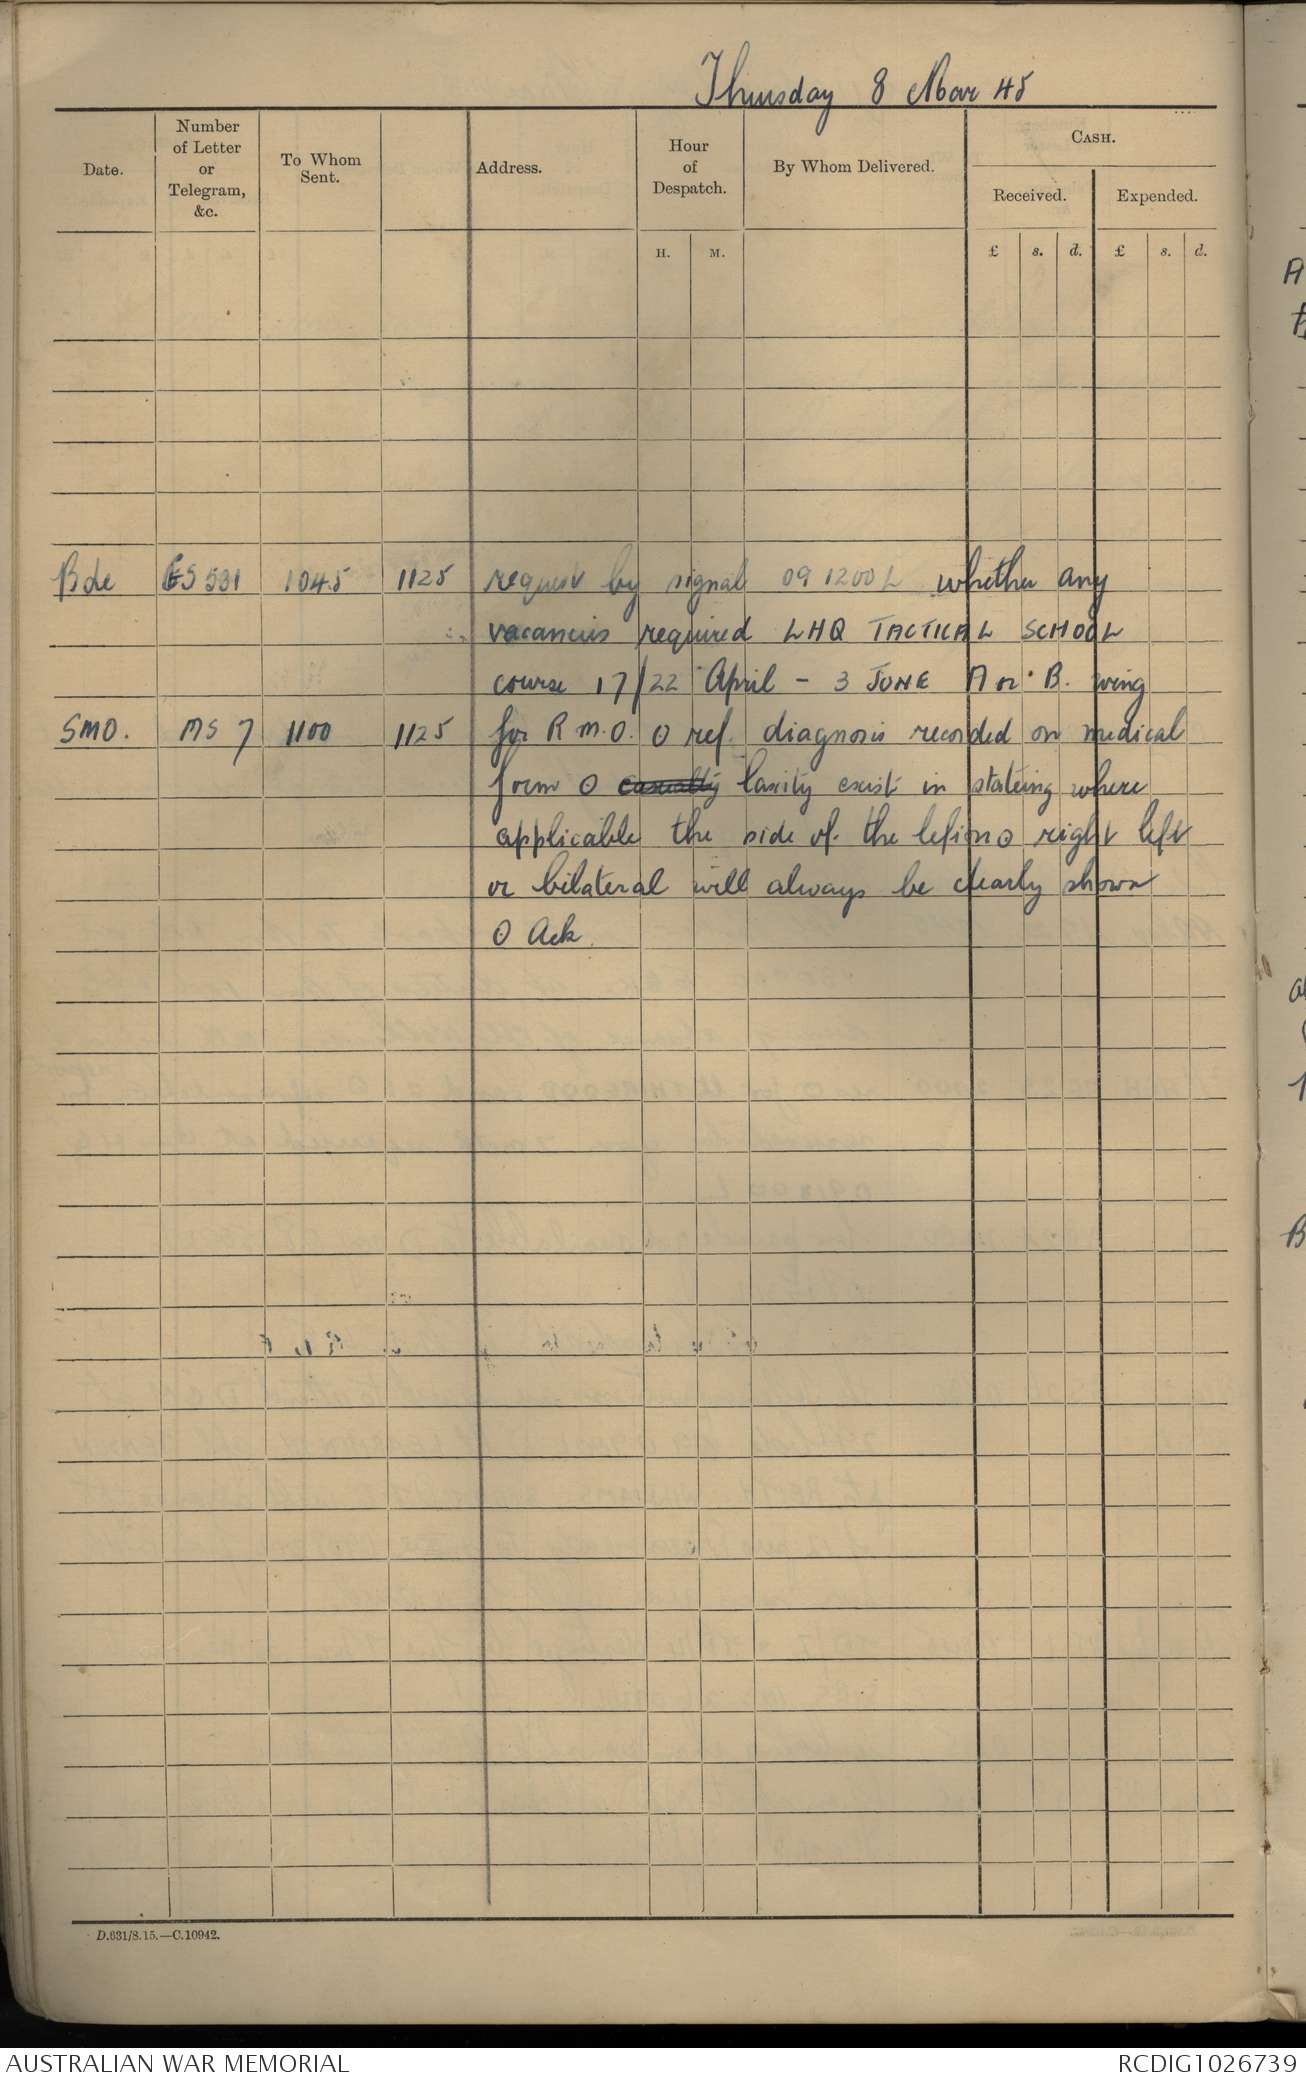 Thursday 8 Mar 45
Date. Number of Letter or Telegram, &c. To Whom Sent. Address. Hour of Despatch. By Whom Delivered. CASH.
Received. Expended.
H. M. £ s. d. £ s. d.
Bde GS 531 1045 1125 request by signal 09 1200 L whether any
vacancies required LHQ TACTICAL SCHOOL
course 17/22 April - 3 JUNE A or B. wing
SMO. MS 7 1100 1125 for R.M.O. O ref. diagnosis recorded on medical
form O casualty laxity exist in stateing where
applicable the side of the lesion O right left
or bilateral will always be clearly shown
O Ack.
D.631/8.15.—C.10942.
AUSTRALIAN WAR MEMORIAL
RCDIG1026739